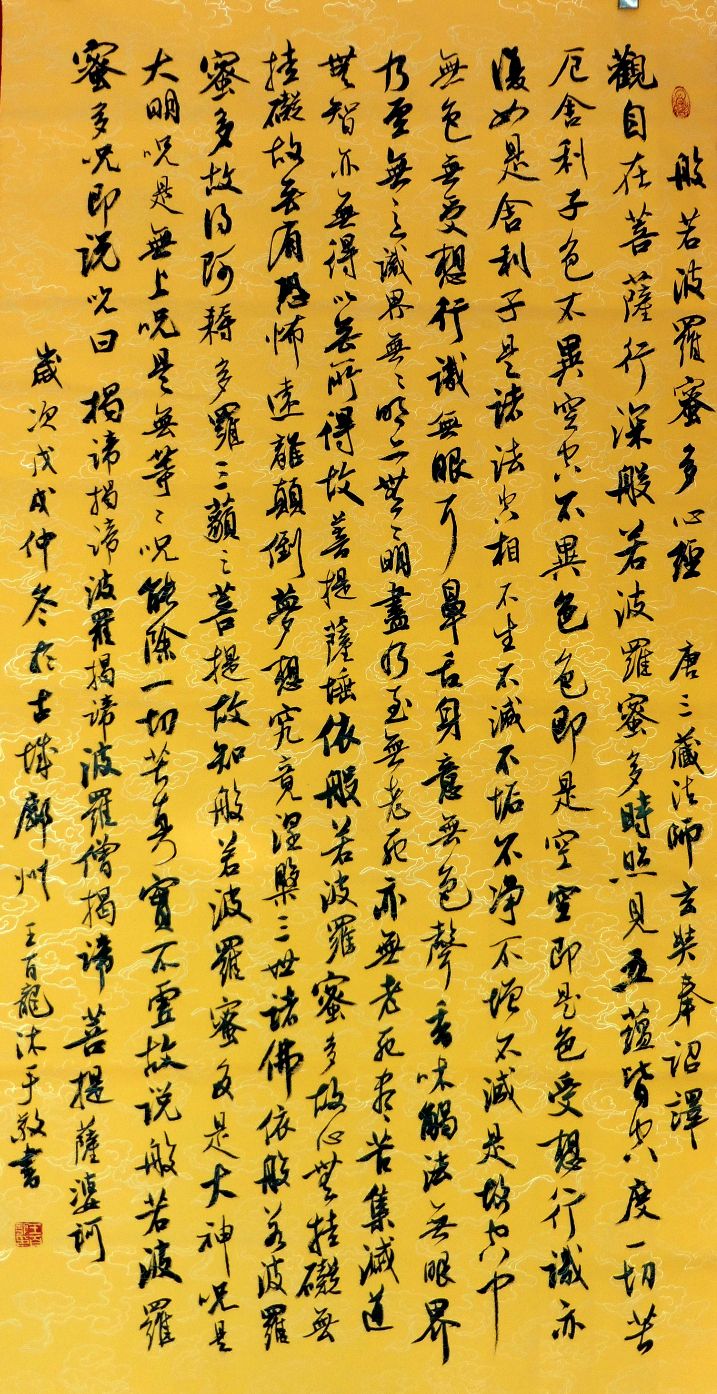 般若波羅蜜多心經 唐三藏法師玄奘奉詔譯
觀自在菩薩行深般若波羅蜜多時照見五蘊皆空度一切苦
厄舍利子色不異空空不異色色即是空空即是色受想行識亦
復如是舍利子是諸法空相不生不滅不垢不净不增不減是故空中
無色無受想行識無眼耳鼻舌身意無色聲香味觸法無眼界
乃至無意識界無〻明亦無〻明盡乃至無老死亦無老死盡苦集滅道
無智亦無得以無所得故菩提薩埵依般若波羅蜜多故心無挂礙無
挂礙故無有恐怖遠離顛倒夢想究竟涅槃三世諸佛依般若波羅
蜜多故得阿耨多羅三藐三菩提故知般若波羅蜜多是大神咒是
大明咒是無上咒是無等〻咒能除一切苦真實不虛故說般若波羅
蜜多咒即說咒曰 揭諦揭諦波羅揭諦波羅僧揭諦菩提薩婆訶
歲次戊戌仲冬於古城鄜州王百龍沐手敬書